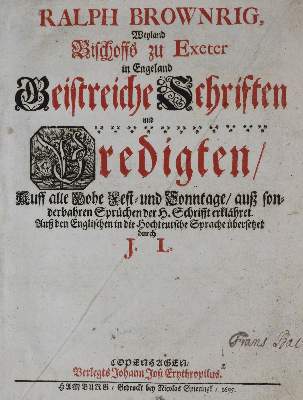 RALPH BROWNRIG,
Weyland
Bischoffs zu Exeter
in Engeland
Geistreiche Schriften
und
Predigten/
Auff alle Hohe Fest- und Sonntage/ auß son-
derbahren Sprüchen der H. Schrifft erkläret.
Auß den Englischen in die Hochteutsche Sprache übersetzet
durch
J. L.
COPENHAGEN/
Verlegts Johann Just Erythropilus.
HAMBURG/ Gedruckt bey Nicolas